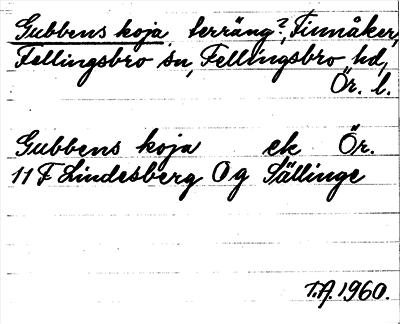 Gubbens koja terräng?, Finnåker,
Fellingsbro sn, Fellingsbro hd,
Ör. l.
Gubbens koja ek Ör.
11 F Lindesberg Og Sällinge
T.A. 1960.